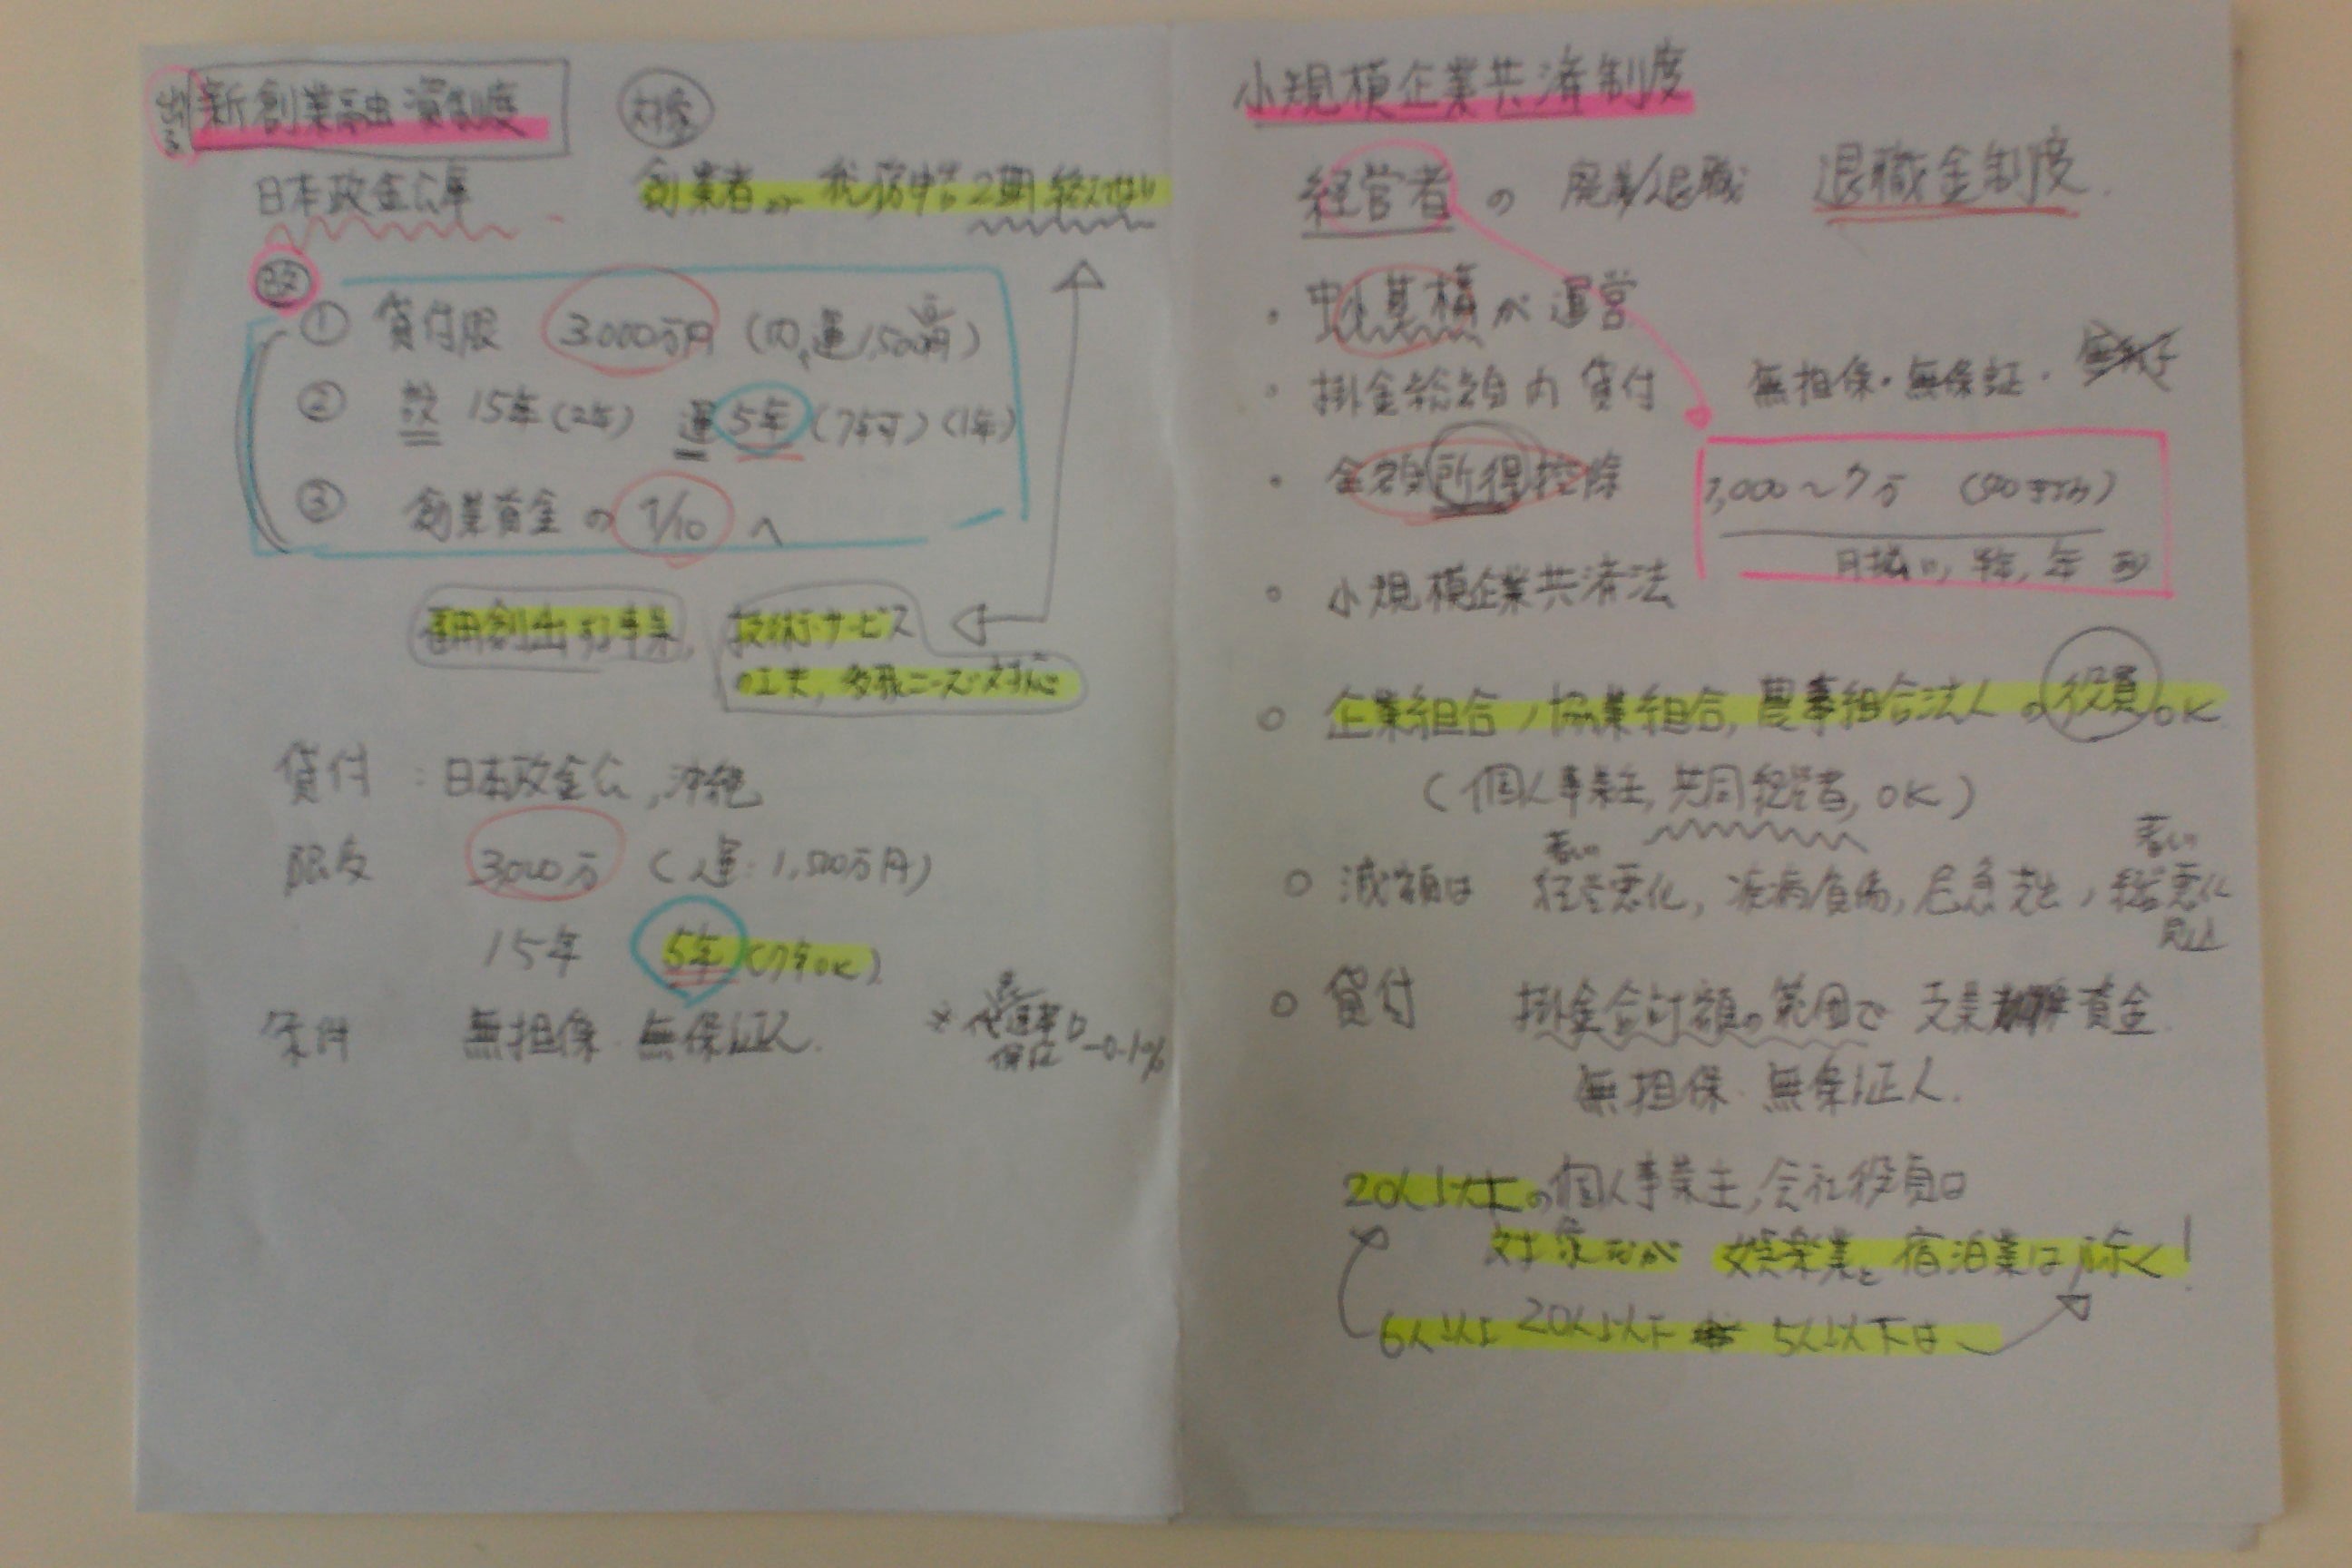 出る 新創業融資制度
対象
日本政金公庫
創業者or税務申告2期終えてない
改
① 貸付限 3000万円 (内,運1,500万円)
② 設 15年(2年) 運 5年 (7年可) (1年)
③ 創業資金の 1/10 へ
雇用創出する事業, 技術・サービス
の工夫, 多様ニーズ対応
貸付 : 日本政金公, 沖縄
限度 3,000万 (運: 1,500万円)
15年 5年 (7年OK)
条件 無担保・無保証人.
-0.1%
小規模企業共済制度
経営者の 廃業/退職 退職金制度.
・中小基構が運営
・掛金総額内貸付 無担保・無保証・
・全額所得控除
1,000〜7万 (500きざみ)
月払い, 半年, 年払
・小規模企業共済法
○ 企業組合, 協業組合, 農事組合法人の役員OK
(個人事業主, 共同経営者, OK)
○ 減額は 著しい経営悪化, 疾病負傷, 危急支出, 著しい経営悪化見込
○ 貸付 掛金合計額の範囲で 資金
無担保・無保証人.
20人以下の個人事業主, 会社役員は
対象だが 娯楽業と宿泊業は除く!
6人以上 20人以下 5人以下は